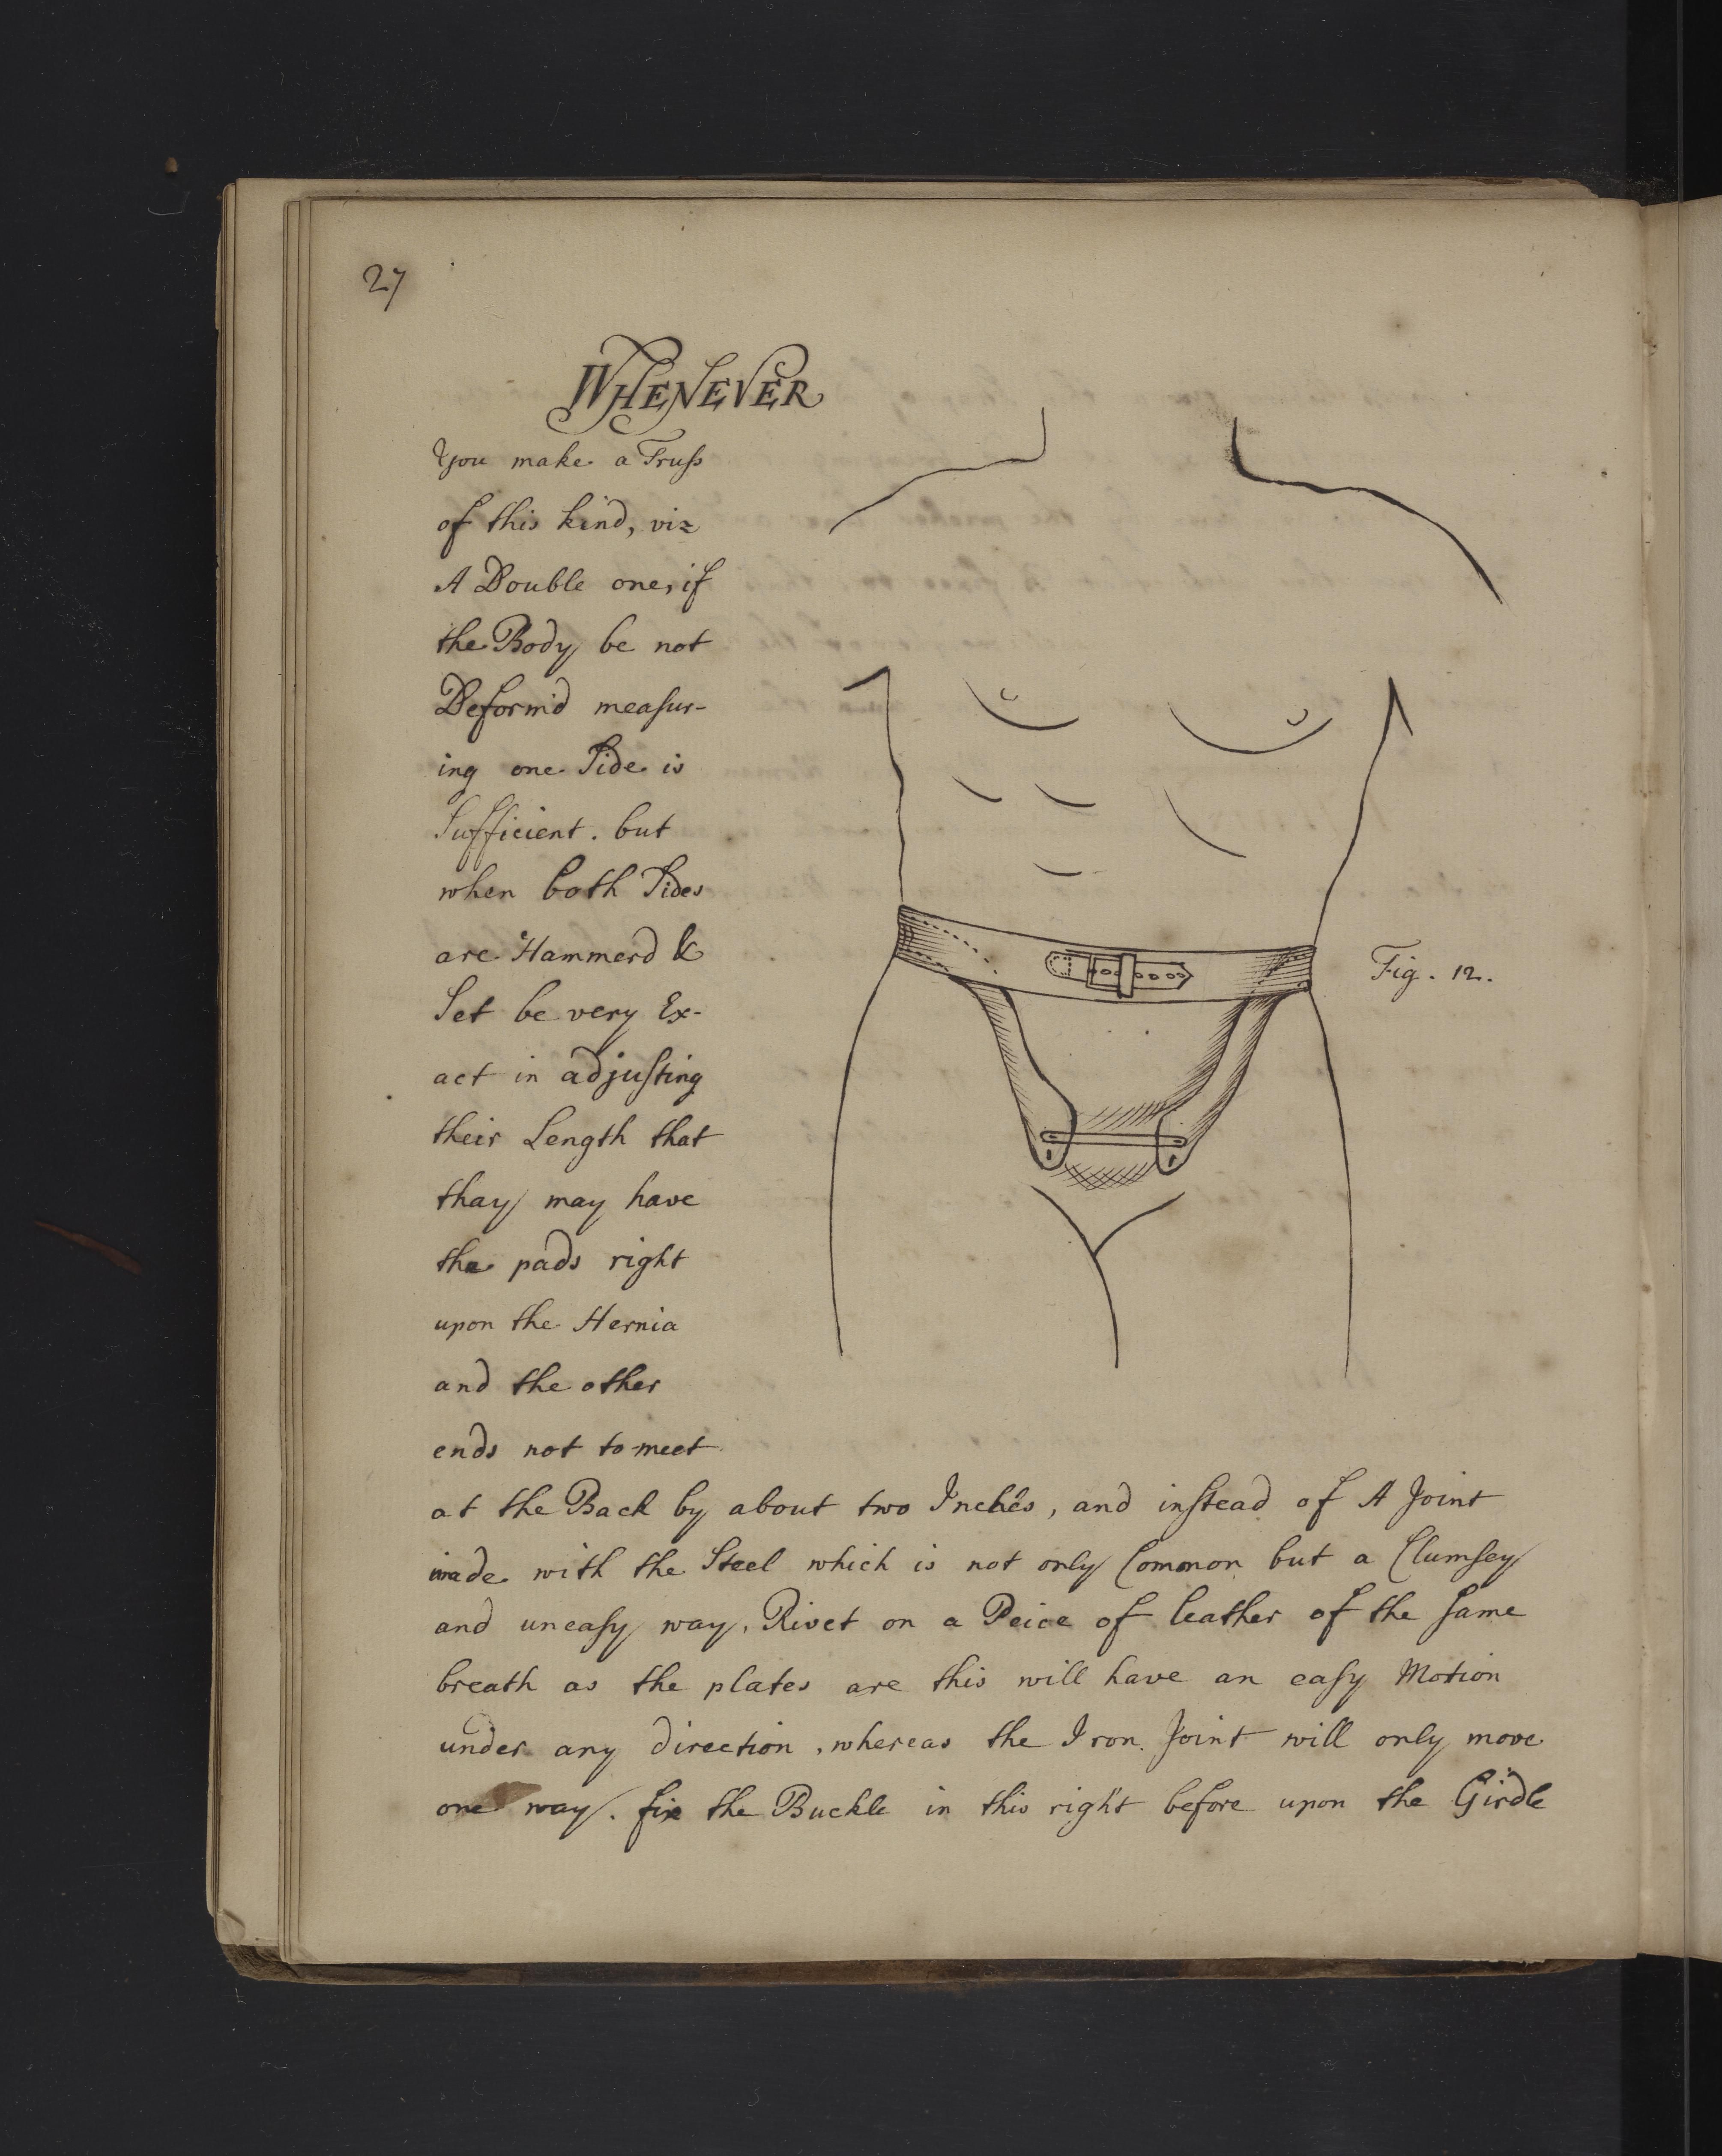 27
WHENEVER
You make a Truſs
of this kind, viz
A Double one, if
the Body be not
Deform'd meaſur-
ing one Side is
Sufficient. but
when both Sides
are Hammerd &
Set be very Ex-
act in adjuſting
their Length that
thay may have
the pads right
upon the Hernia
and the other
ends not to meet
Fig. 12.
at the Back by about two Inches, and inſtead of A Joint
made with the Steel which is not only Common but a Clumſey
and uneaſy way, Rivet on a Peice of leather of the ſame
breath as the plates are this will have an eaſy Motion
under any direction, whereas the Iron Joint will only move
one way. fix the Buckle in this right before upon the Girdle